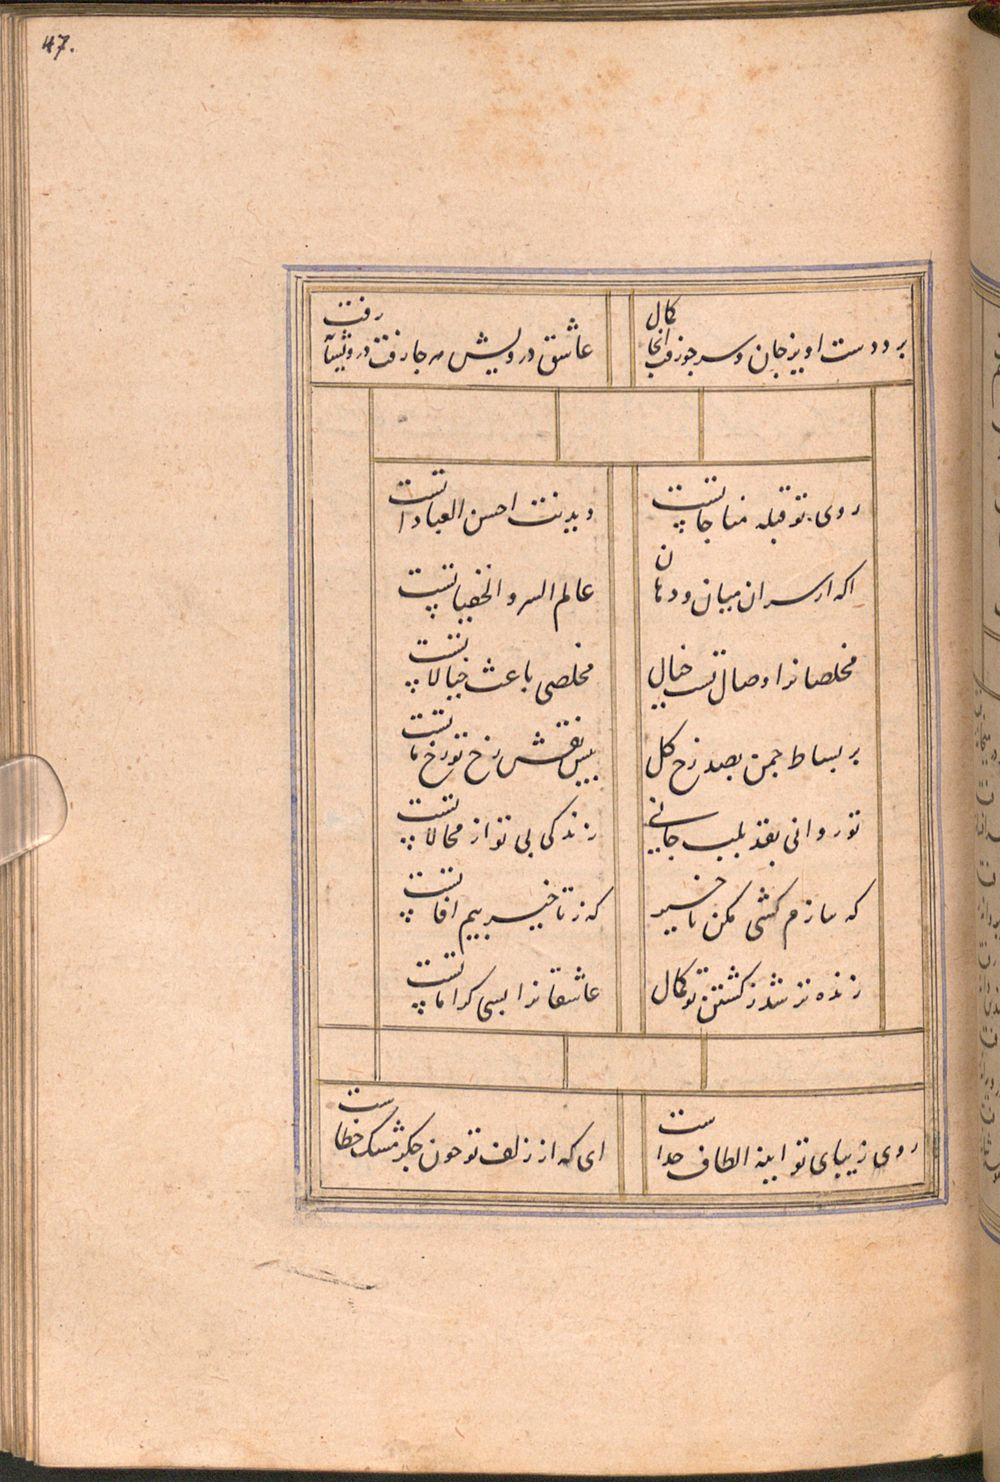 47.
برد دست اویز جان و سر جوز فب انجا کمال
عاشق درویش هر جا رفت درویشانه رفت
روی تو قبله مناجاتست
دیدنت احسن العباداتست
اکه از سر ان میان و دهان
عالم السر و الخفیاتست
مخلصانرا وصال تست خیال
مخلصی باعث خیالاتست
بر بساط جمن بصد رخ کل
پیش نقش رخ تو رخ ماتست
تو روانی بقد بلب جانی
زندکی بی تو از محالاتست
که سازم کشی مکن تاخیر
که ز تاخیر بیم افاتست
زنده تر شد ز کشتن تو کمال
عاشقانرا بسی کراماتست
روی زیبای تو ایینه الطاف خداست
ای که از زلف تو خون جکر مشک خطاست